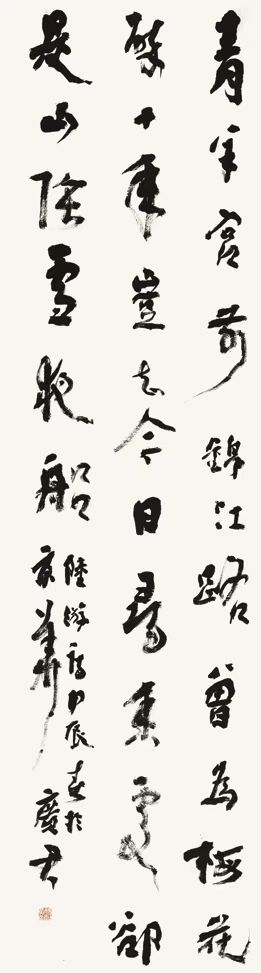 青羊宮前錦江路曾為梅花
醉十年豈知今日尋香處卻
是山陰雪夜船
陸游詩甲辰春於
京華慶君